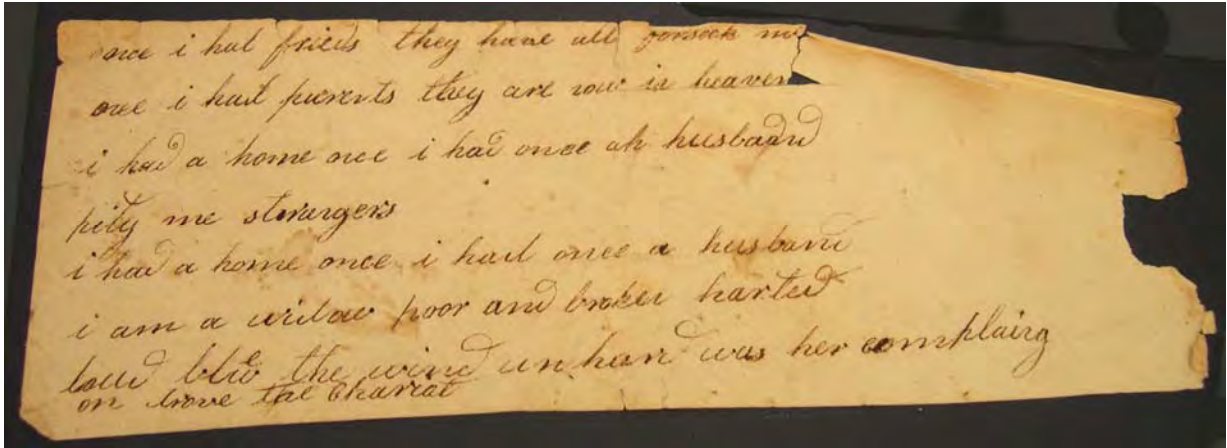 once i had frieds they have all forsook me
once i had perents they are now in heaven
i had a home once i had once ah husbadnd
pity me strangers
i had a home once i had once a husband
i am a widow poor and broken harted
loud blew the wind unhard was her complaing
on drove the Chariat